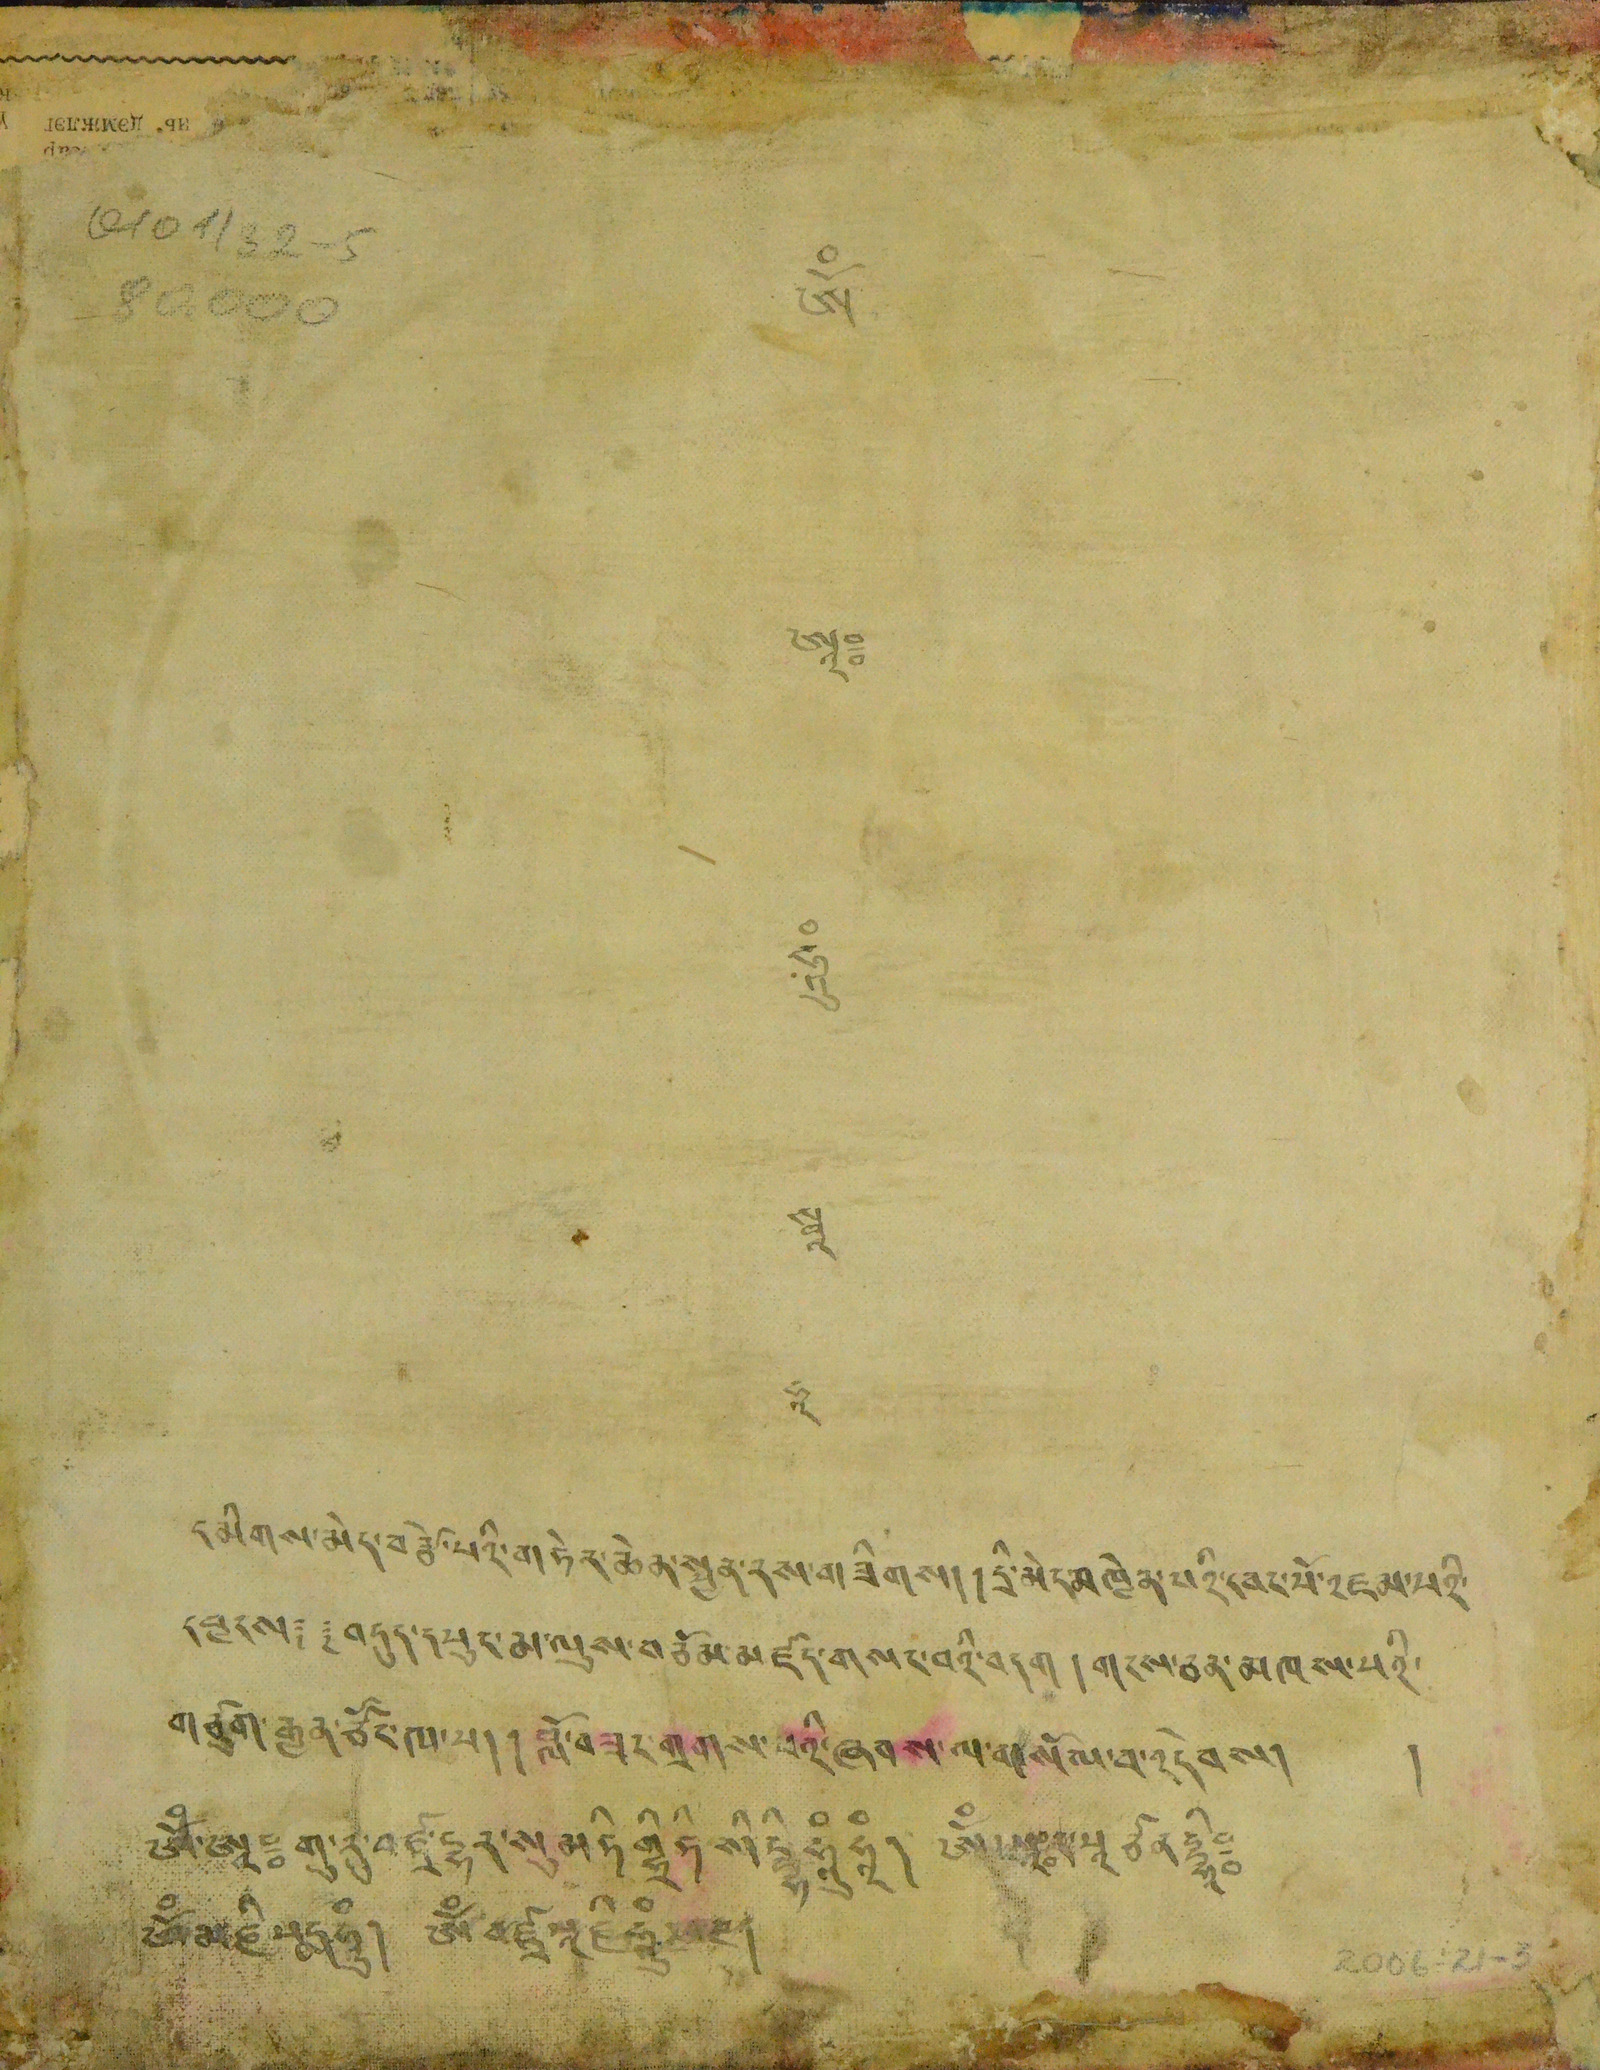 0101/32-5
80.000
ཨོཾ
ཨཱཿ
ཧཱུྃ
སྭཱ
ཧཱ
དམིགས་མེད་བརྩེ་བའི་གཏེར་ཆེན་སྤྱན་རས་གཟིགས། །དྲི་མེད་མཁྱེན་པའི་དབང་པོ་འཇམ་པའི་
དབྱངས༔ ༔བདུད་དཔུང་མ་ལུས་བཅོམ་མཛད་གསང་བའི་བདག །གངས་ཅན་མཁས་པའི་
གཙུག་རྒྱན་ཙོང་ཁ་པ། །བློ་བཟང་གྲགས་པའི་ཞབས་ལ་གསོལ་བ་འདེབས། །
ཨོཾ་ཨཱཿ གུ་རུ་བཛྲ་དྷར་སུ་མ་ཏི་ཀཱིརྟི་སིདྡྷི་ཧཱུྃ་ཧཱུྃ།
ཨོཾ་མ་ཎི་པདྨེ་ཧཱུྃ། ཨོཾ་བཛྲ་པཱ་ཎི་ཧཱུྃ་ཕཊ།
2006-21-3